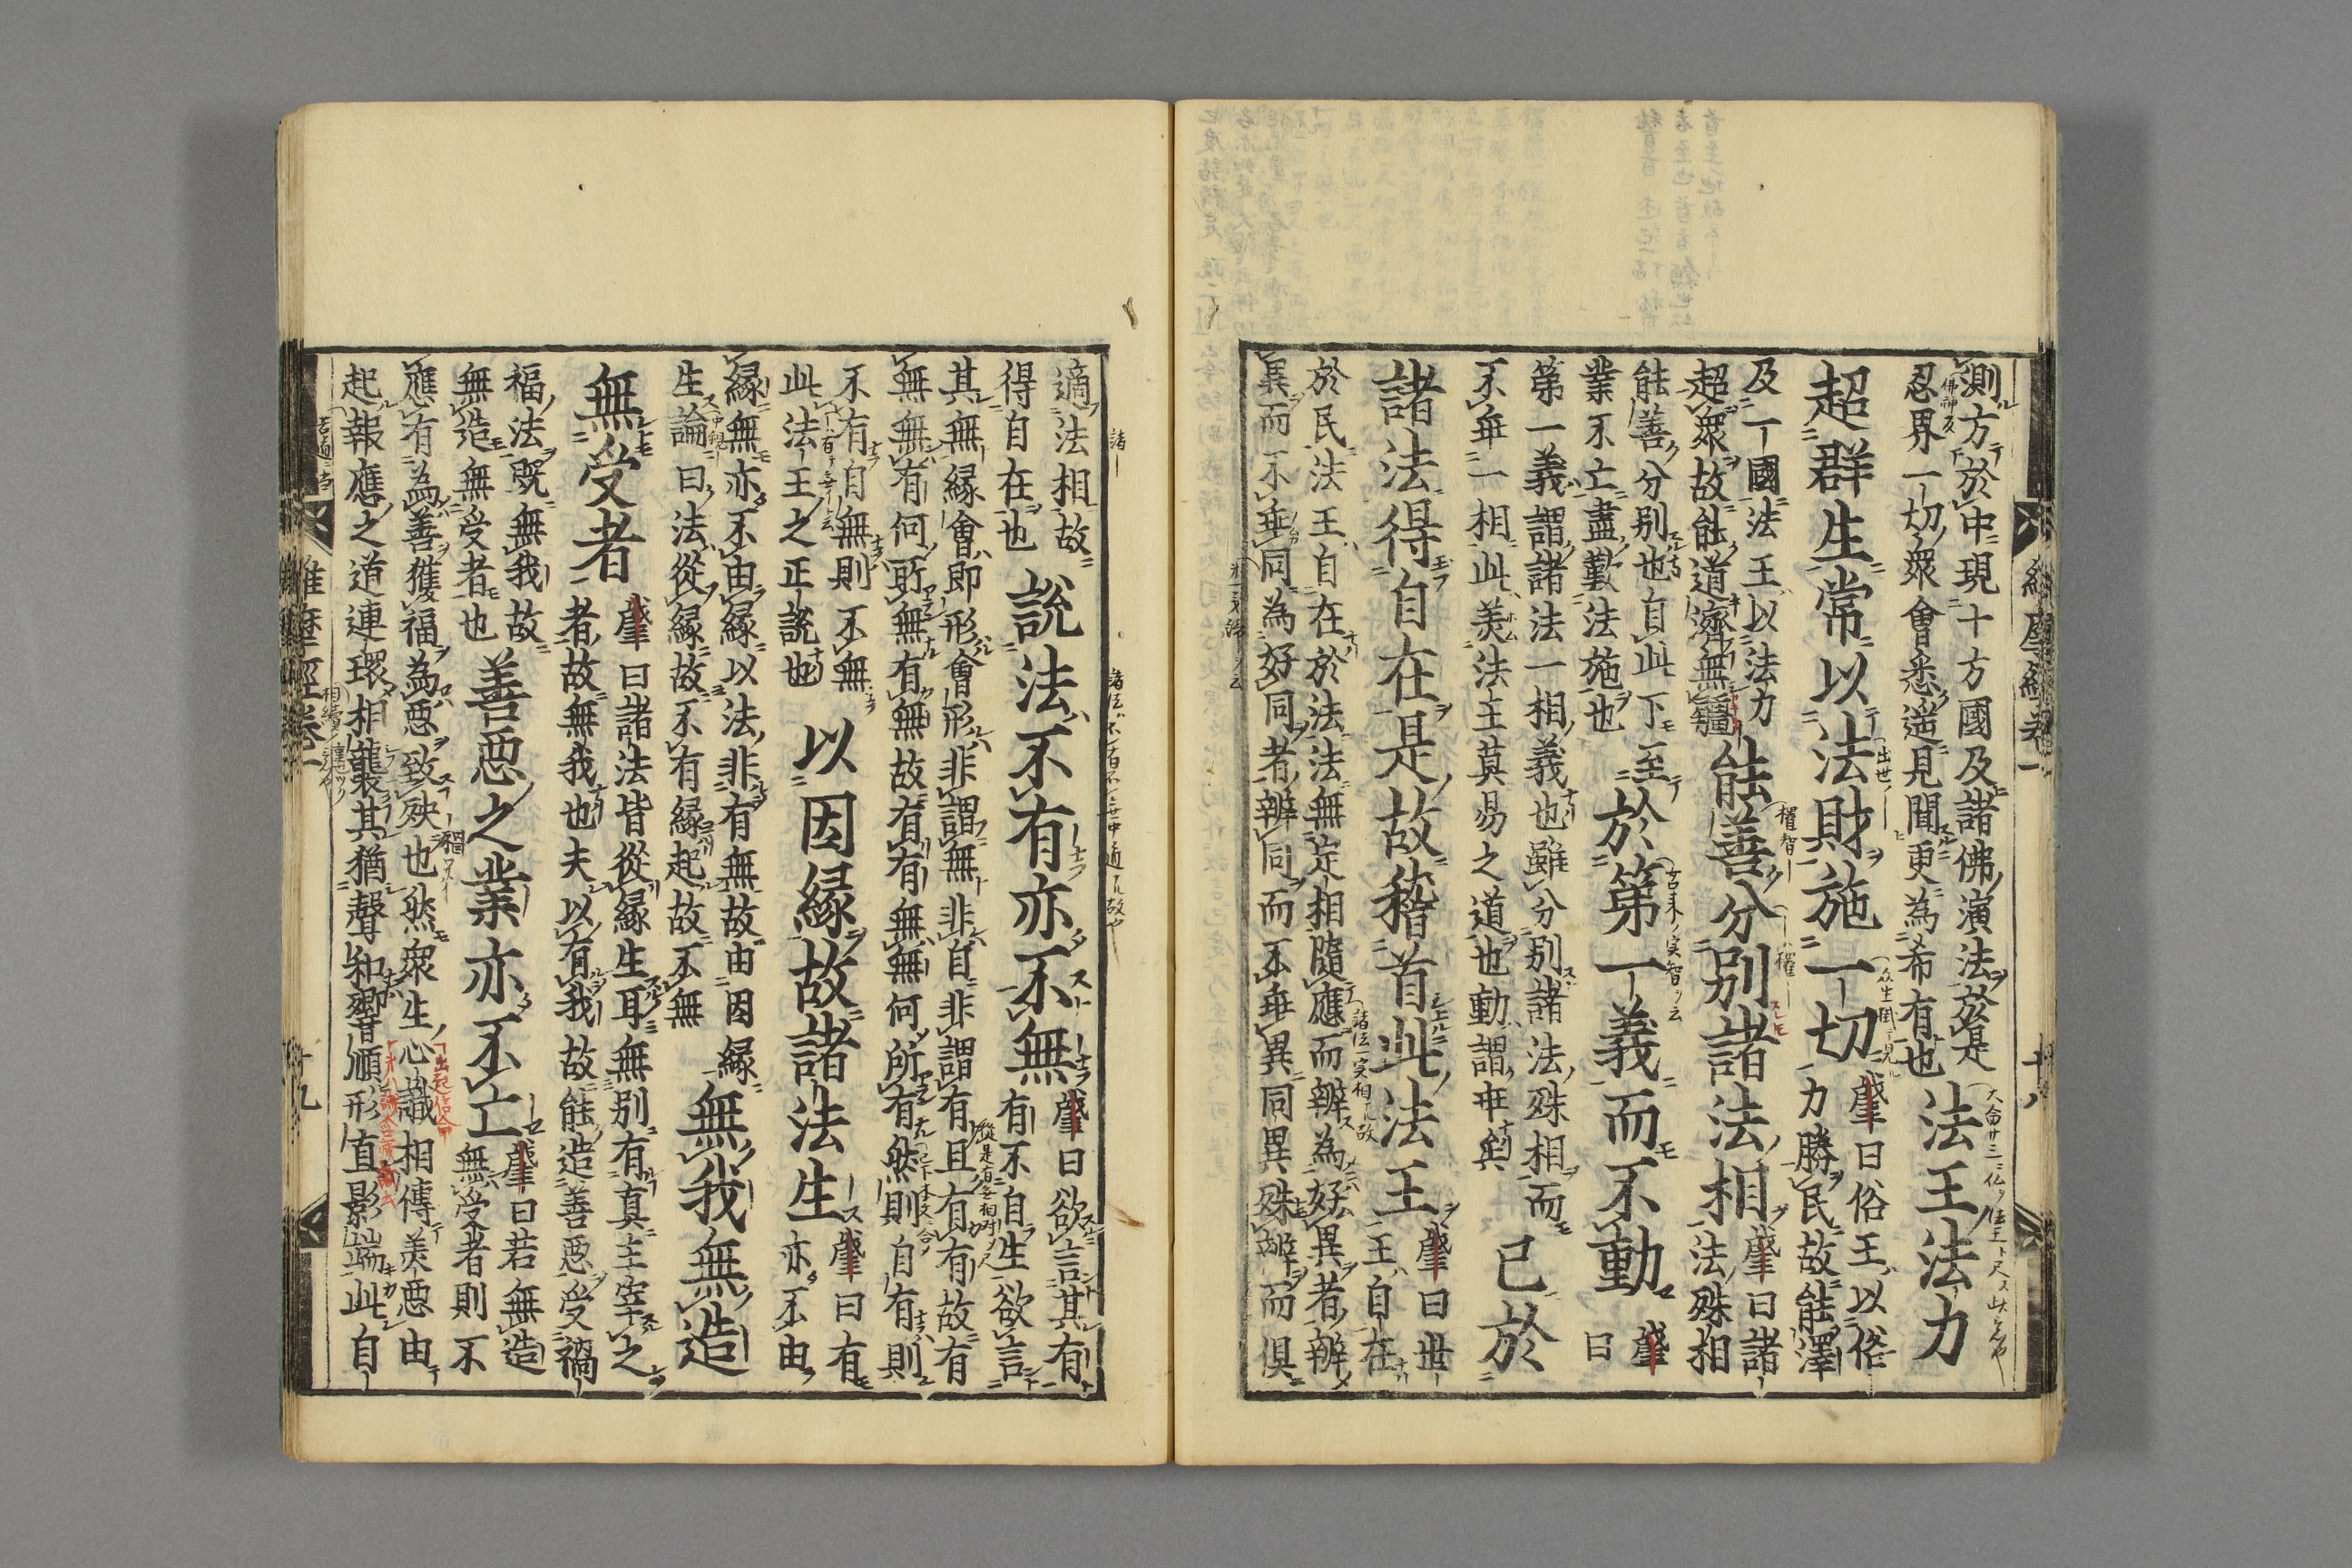 測方於中現十方國及諸佛演法於是
忍界一切衆會悉遥見聞更為希有也
法王法力
超群生常以法財施一切
肇曰俗王以俗
力勝民故能澤
及一國法王以法力
超衆故能道濟無疆
能善分別諸法相
肇曰諸
法殊相
能善分別也自此下至
業不亡盡歎法施也
於第一義而不動
肇
曰
第一義謂諸法一相義也雖分別諸法殊相而
不乖一相此美法王莫易之道也動謂乖矣
已於
諸法得自在是故稽首此法王
肇曰世
王自在
於民法王自在於法法無定相隨應而辨為好異者辨
異而不乖同為好同者辨同而不乖異同異殊辨而俱
適法相故
得自在也
說法不有亦不無
肇曰欲言其有
有不自生欲言
其無緣會即形會形非謂無非自非謂有且有有故有
無無有何所無有無故有有無無何所有然則自有則
不有自無則不無
此法王之正說也
以因緣故諸法生
肇曰有
亦不由
緣無亦不由緣以法非有無故由因緣
生論曰法從緣故不有緣起故不無
無我無造
無受者
肇曰諸法皆從緣生耳無別有真主宰之
者故無我也夫以有我故能造善惡受禍
福法既無我故
無造無受者也
善惡之業亦不亡
肇曰若無造
無受者則不
應有為善獲福為惡致殃也然衆生心識相傳美惡由
起報應之道連環相襲其猶聲和響順形直影端此自
維摩經卷一
十八
維摩經卷一
十九